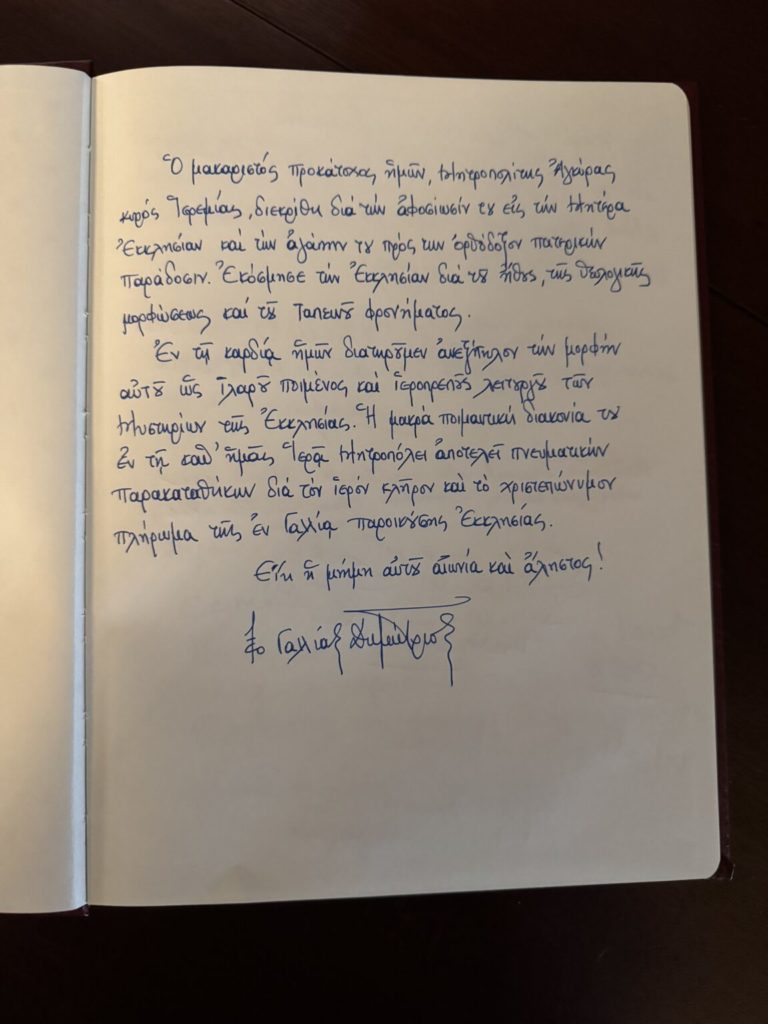 Ὁ μακαριστός προκάτοχος ἡμῶν, Μητροπολίτης Ἀγκύρας
κυρός Ἱερεμίας, διεκρίθη διά τήν ἀφοσίωσίν του εἰς τήν Μητέρα
Ἐκκλησίαν καί τήν ἀγάπην του πρός την ὀρθόδοξον πατερικήν
παράδοσιν. Ἐκόσμησε τήν Ἐκκλησίαν διά τοῦ ἤθους, τῆς θεολογικῆς
μορφώσεως καί τοῦ ταπεινοῦ φρονήματος.
Ἐν τῇ καρδίᾳ ἡμῶν διατηροῦμεν ἀνεξίτηλον τήν μορφήν
αὐτοῦ ὡς ἱλαροῦ ποιμένος καί ἱεροπρεποῦς λειτουργοῦ τῶν
Μυστηρίων τῆς Ἐκκλησίας. Ἡ μακρά ποιμαντική διακονία του
ἐν τῇ καθ' ἡμᾶς Ἱερᾷ Μητροπόλει ἀποτελεῖ πνευματικήν
παρακαταθήκην διά τόν ἱερόν κλῆρον καί τό χριστεπώνυμον
πλήρωμα τῆς ἐν Γαλλίᾳ παροικούσης Ἐκκλησίας.
Εἴη ἡ μνήμη αὐτοῦ αἰωνία καί ἄληστος!
†ο Γαλλίας Δημήτριος